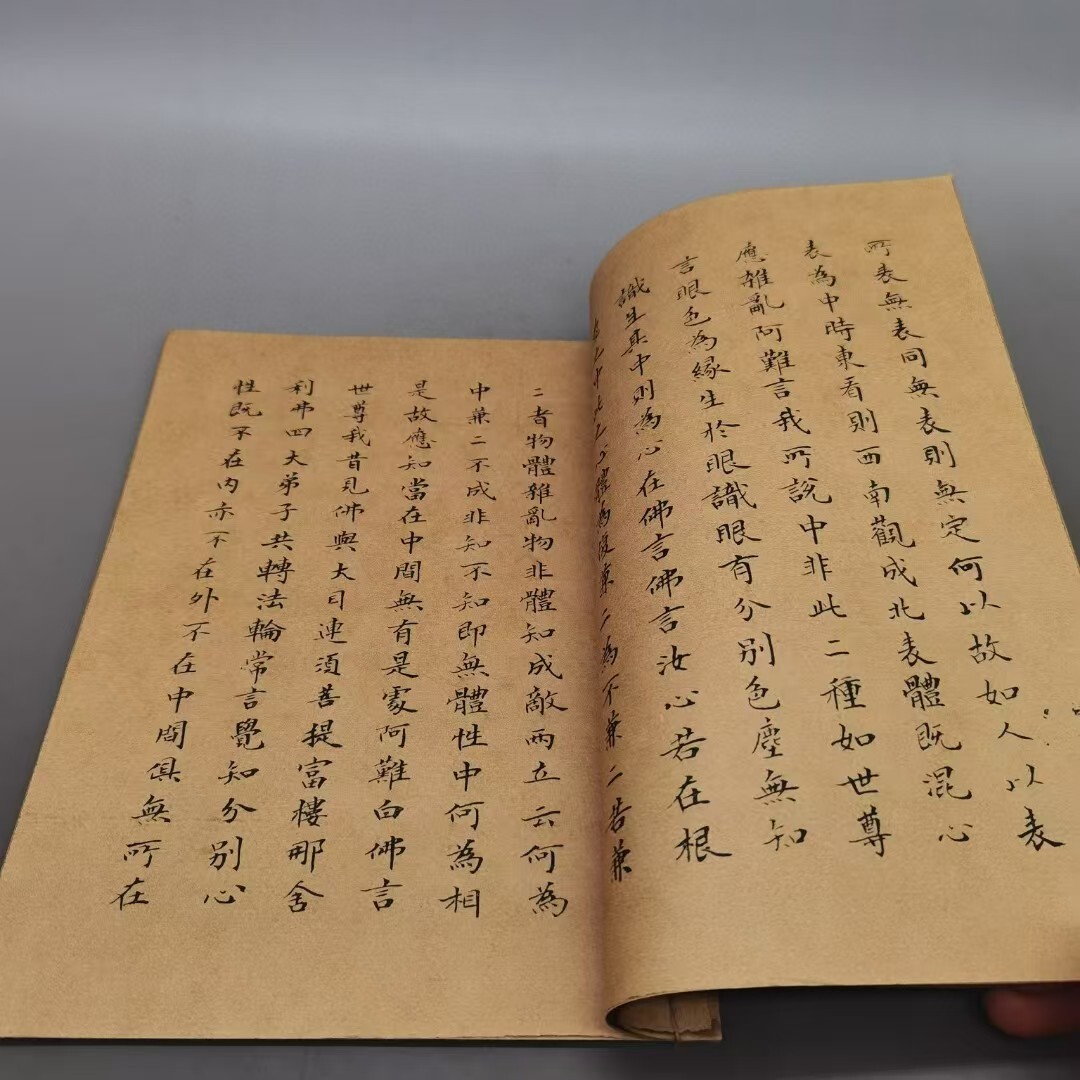 所表無表同無表則無定何以故如人以表
表為中時東看則西南觀成北表體既混心
應雜亂阿難言我所說中非此二種如世尊
言眼色為緣生於眼識眼有分別色塵無知
識生其中則為心在佛言佛言汝心若在根
中此之心體為復兼二為不兼二告兼
二者物體雜亂物非體知成敵兩立云何為
中兼二不成非知不知即無體性中何為相
是故應知當在中間無有是處阿難白佛言
世尊我昔見佛與大目連須菩提富樓那舍
利弗四大弟子共轉法輪常言覺知分別心
性既不在內亦不在外不在中間俱無所在